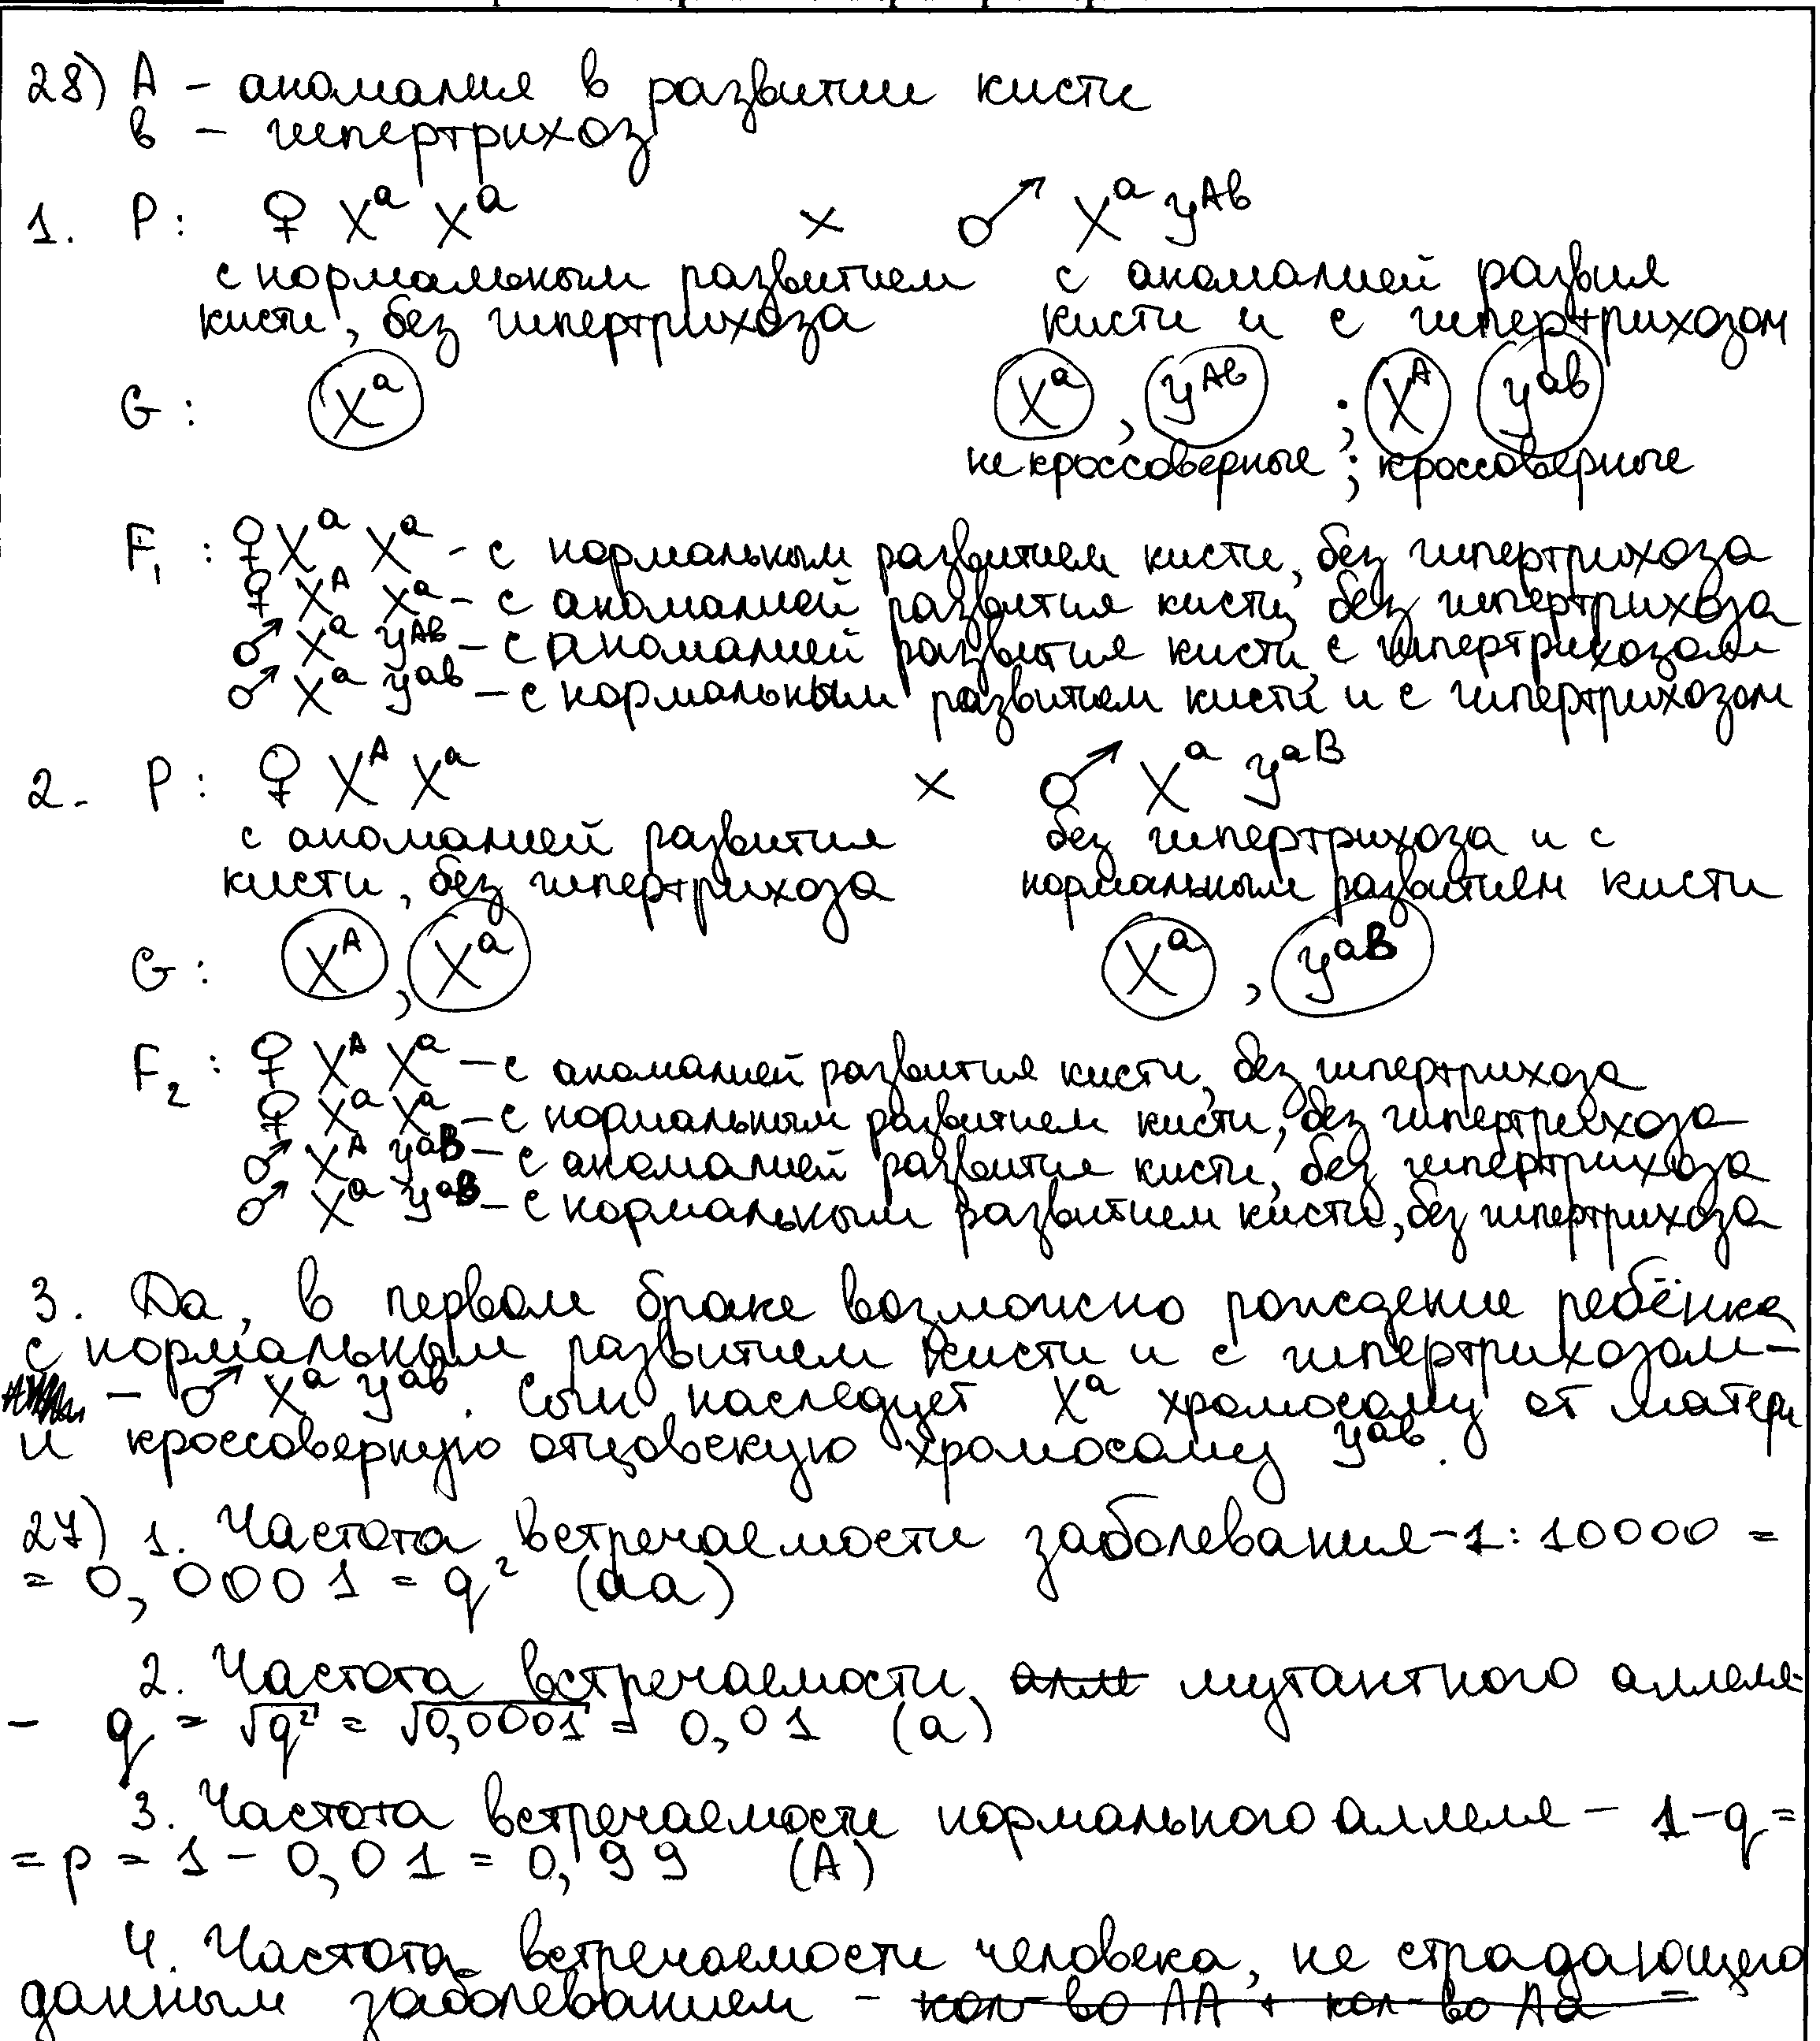 28) А – аномалия в развитии кисти
в – гипертрихоз
1. P: ♀ Xᵃ Xᵃ × ♂ Xᵃ yᴬᵇ
с нормальным развитием с аномалией развия
кисти, без гипертрихоза кисти и с гипертрихозом
G: Xᵃ Xᵃ, yᴬᵇ ; Xᴬ yᵃᵇ
некроссоверные ; кроссоверные
F₁ : ♀ Xᵃ Xᵃ – с нормальным развитием кисти, без гипертрихоза
♀ Xᴬ Xᵃ – с аномалией развития кисти, без гипертрихоза
♂ Xᵃ yᴬᵇ – с аномалией развития кисти, с гипертрихозом
♂ Xᵃ yᵃᵇ – с нормальным развитием кисти и с гипертрихозом
2. P: ♀ Xᴬ Xᵃ × ♂ Xᵃ yᵃᴮ
с аномалией развития без гипертрихоза и с
кисти, без гипертрихоза нормальным развитием кисти
G: Xᴬ, Xᵃ Xᵃ, yᵃᴮ
F₂ : ♀ Xᴬ Xᵃ – с аномалией развития кисти, без гипертрихоза
♀ Xᵃ Xᵃ – с нормальным развитием кисти, без гипертрихоза
♂ Xᴬ yᵃᴮ – с аномалией развития кисти, без гипертрихоза
♂ Xᵃ yᵃᴮ – с нормальным развитием кисти, без гипертрихоза
3. Да, в первом браке возможно рождение ребёнка
с нормальным развитием кисти и с гипертрихозом –
– ♂ Xᵃ yᵃᵇ. Сын наследует Xᵃ хромосому от матери
и кроссоверную отцовскую хромосому yᵃᵇ.
27) 1. Частота встречаемости заболевания – 1:10000 =
= 0,0001 = q² (аа)
2. Частота встречаемости алле мутантного аллеля –
– q = √q² = √0,0001 = 0,01 (а)
3. Частота встречаемости нормального аллеля – 1-q =
= p = 1 – 0,01 = 0,99 (А)
4. Частота встречаемости человека, не страдающего
данным заболеванием – кол-во АА + кол-во Аа =